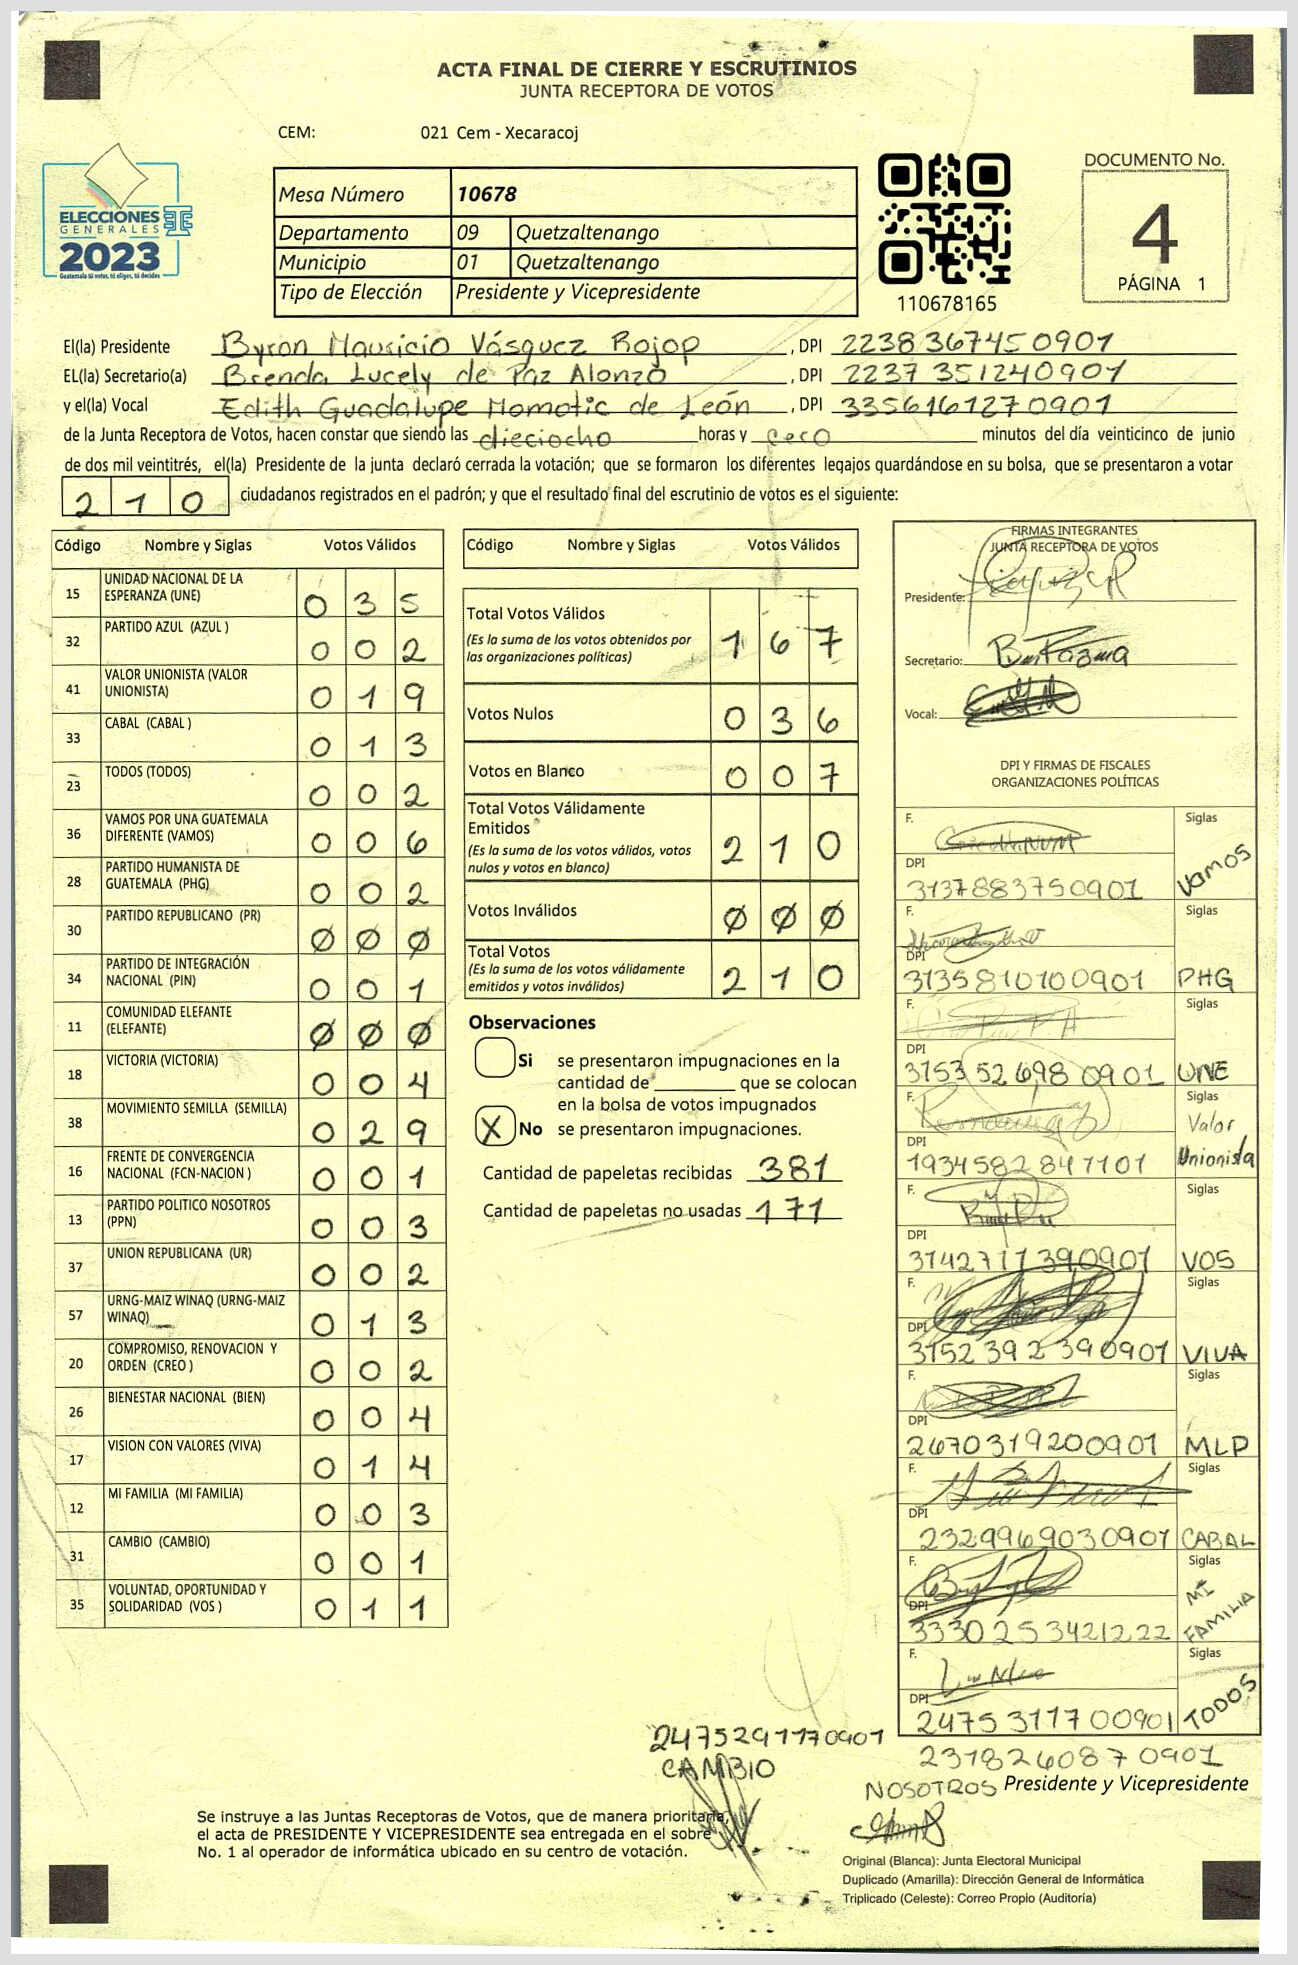 ACTA FINAL DE CIERRE Y ESCRUTINIOS
JUNTA RECEPTORA DE VOTOS
CEM: 021 Cem - Xecaracoj
ELECCIONES
GENERALES
2023
Guatemala tú votas, tú eliges, tú decides
Mesa Número 10678
Departamento 09 Quetzaltenango
Municipio 01 Quetzaltenango
Tipo de Elección Presidente y Vicepresidente
110678165
DOCUMENTO No.
4
PÁGINA 1
El(la) Presidente Byron Mauricio Vásquez Rojop, DPI 2238367450901
EL(la) Secretario(a) Brenda Lucely de Paz Alonzo, DPI 2237351240901
y el(la) Vocal Edith Guadalupe Momotic de León, DPI 3356161270901
de la Junta Receptora de Votos, hacen constar que siendo las dieciocho horas y cero minutos del día veinticinco de junio
de dos mil veintitrés, el(la) Presidente de la junta declaró cerrada la votación; que se formaron los diferentes legajos guardándose en su bolsa, que se presentaron a votar
210 ciudadanos registrados en el padrón; y que el resultado final del escrutinio de votos es el siguiente:
Código Nombre y Siglas Votos Válidos
15 UNIDAD NACIONAL DE LA ESPERANZA (UNE) 035
32 PARTIDO AZUL (AZUL ) 002
41 VALOR UNIONISTA (VALOR UNIONISTA) 019
33 CABAL (CABAL ) 013
23 TODOS (TODOS) 002
36 VAMOS POR UNA GUATEMALA DIFERENTE (VAMOS) 006
28 PARTIDO HUMANISTA DE GUATEMALA (PHG) 002
30 PARTIDO REPUBLICANO (PR) 000
34 PARTIDO DE INTEGRACIÓN NACIONAL (PIN) 001
11 COMUNIDAD ELEFANTE (ELEFANTE) 000
18 VICTORIA (VICTORIA) 004
38 MOVIMIENTO SEMILLA (SEMILLA) 029
16 FRENTE DE CONVERGENCIA NACIONAL (FCN-NACION ) 001
13 PARTIDO POLITICO NOSOTROS (PPN) 003
37 UNION REPUBLICANA (UR) 002
57 URNG-MAIZ WINAQ (URNG-MAIZ WINAQ) 013
20 COMPROMISO, RENOVACION Y ORDEN (CREO ) 002
26 BIENESTAR NACIONAL (BIEN) 004
17 VISION CON VALORES (VIVA) 014
12 MI FAMILIA (MI FAMILIA) 003
31 CAMBIO (CAMBIO) 001
35 VOLUNTAD, OPORTUNIDAD Y SOLIDARIDAD (VOS ) 011
Código Nombre y Siglas Votos Válidos
Total Votos Válidos 167
(Es la suma de los votos obtenidos por
las organizaciones políticas)
Votos Nulos 036
Votos en Blanco 007
Total Votos Válidamente
Emitidos 210
(Es la suma de los votos válidos, votos
nulos y votos en blanco)
Votos Inválidos 000
Total Votos 210
(Es la suma de los votos válidamente
emitidos y votos inválidos)
Observaciones
Si se presentaron impugnaciones en la
cantidad de ________ que se colocan
en la bolsa de votos impugnados
X No se presentaron impugnaciones.
Cantidad de papeletas recibidas 381
Cantidad de papeletas no usadas 171
FIRMAS INTEGRANTES
JUNTA RECEPTORA DE VOTOS
Presidente:
Secretario:
Vocal:
DPI Y FIRMAS DE FISCALES
ORGANIZACIONES POLÍTICAS
F. Siglas
DPI 3137883750901 Vamos
F. Siglas
DPI 3135810100901 PHG
F. Siglas
DPI 3153526980901 UNE
F. Siglas
DPI 1934582847101 Valor Unionista
F. Siglas
DPI 3142717390901 VOS
F. Siglas
DPI 3152392390901 VIVA
F. Siglas
DPI 2670319200901 MLP
F. Siglas
DPI 2329969030901 CABAL
F. Siglas
DPI 3330253421222 MI FAMILIA
F. Siglas
DPI 2475311700901 TODOS
2475291170901
CAMBIO
2318260870901
NOSOTROS
Presidente y Vicepresidente
Se instruye a las Juntas Receptoras de Votos, que de manera prioritaria,
el acta de PRESIDENTE Y VICEPRESIDENTE sea entregada en el sobre
No. 1 al operador de informática ubicado en su centro de votación.
Original (Blanca): Junta Electoral Municipal
Duplicado (Amarilla): Dirección General de Informática
Triplicado (Celeste): Correo Propio (Auditoría)